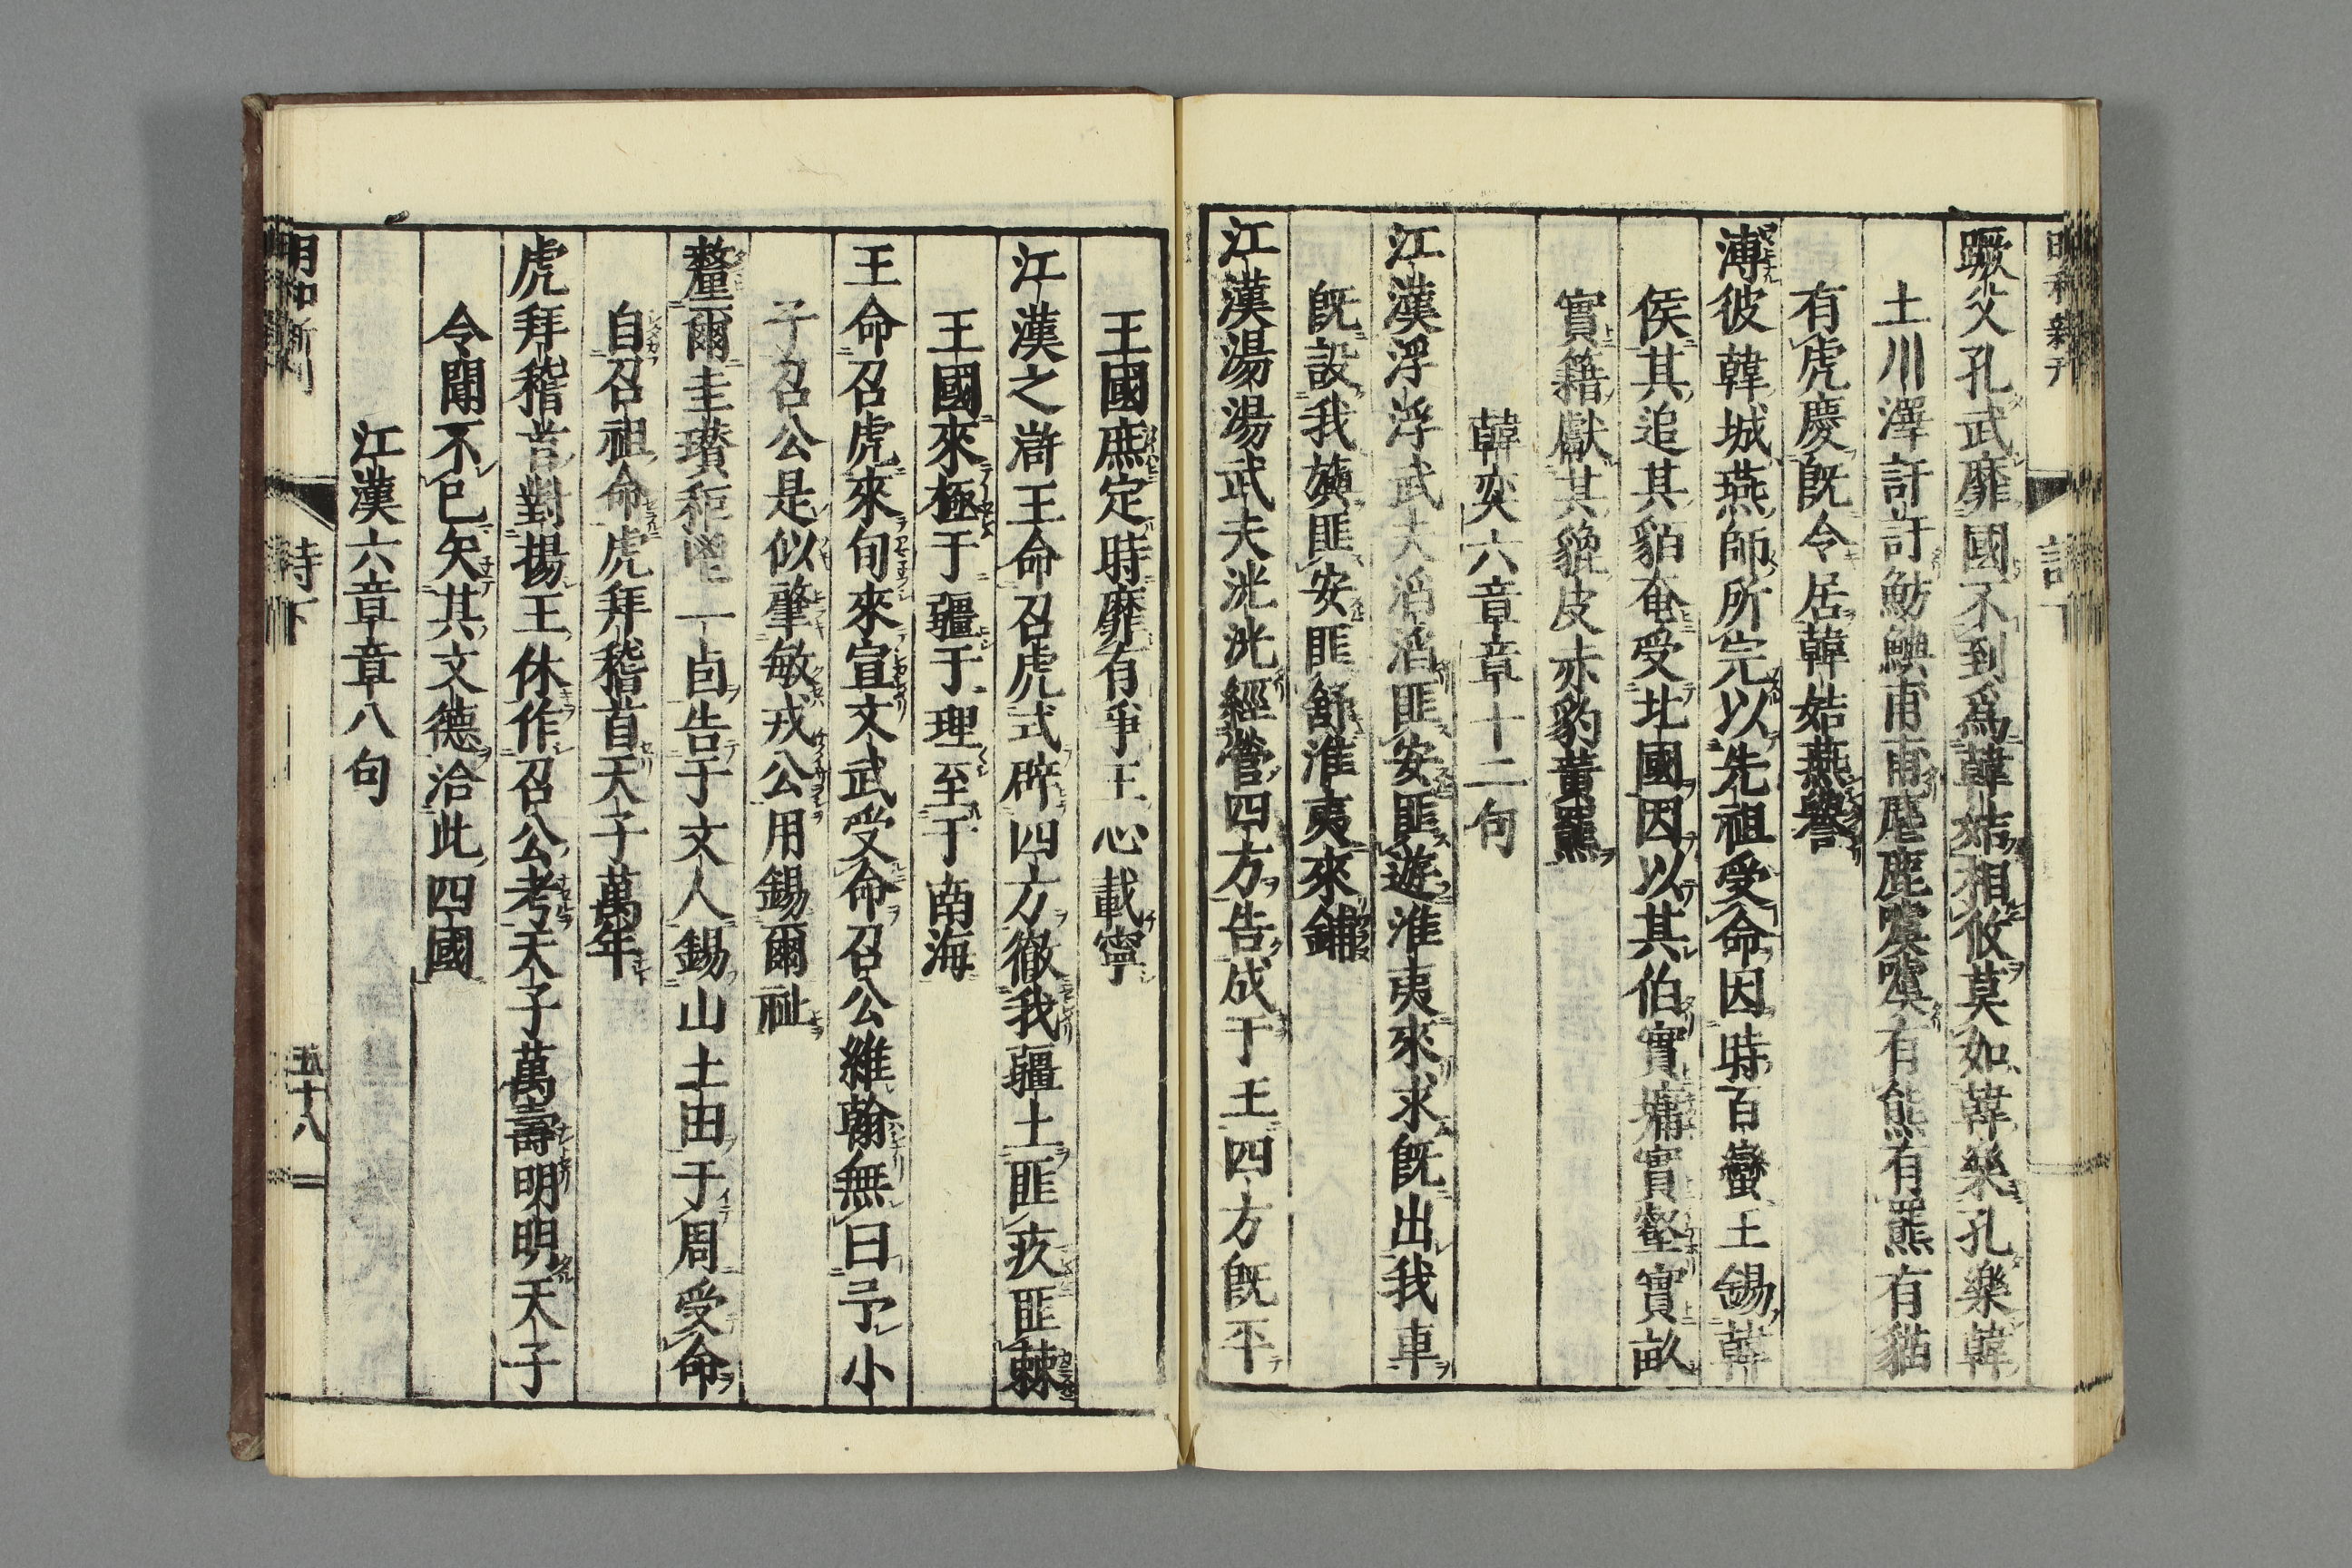 明和新刊
詩下
蹶父孔武靡國不到爲韓姞相攸莫如韓樂孔樂韓
土川澤訏訏魴鱮甫甫麀鹿噳噳有熊有羆有貓
有虎慶旣令居韓姞燕譽
溥彼韓城燕師所完以先祖受命因時百蠻王錫韓
侯其追其貊奄受北國因以其伯實墉實壑實畝
實籍獻其貔皮赤豹黃羆
韓奕六章章十二句
江漢浮浮武夫滔滔匪安匪遊淮夷來求旣出我車
旣設我旟匪安匪舒淮夷來鋪
江漢湯湯武夫洸洸經營四方告成于王四方旣平
王國庶定時靡有爭王心載寧
江漢之滸王命召虎式辟四方徹我疆土匪疚匪棘
王國來極于疆于理至于南海
王命召虎來旬來宣文武受命召公維翰無曰予小
子召公是似肇敏戎公用錫爾祉
釐爾圭瓚秬鬯一卣告于文人錫山土田于周受命
自召祖命虎拜稽首天子萬年
虎拜稽首對揚王休作召公考天子萬壽明明天子
令聞不已矢其文德洽此四國
江漢六章章八句
明和新刊
詩下
五十八